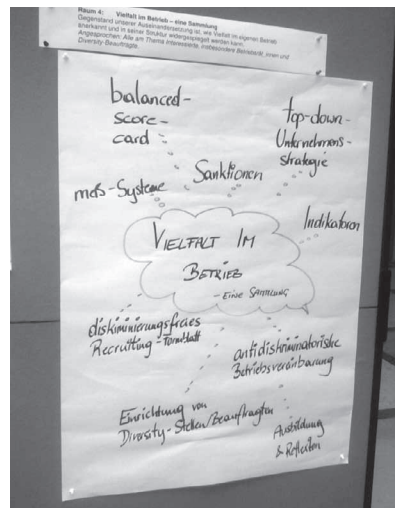 Raum 4: Vielfalt im Betrieb – eine Sammlung
Gegenstand unserer Auseinandersetzung ist, wie Vielfalt im eigenen Betrieb
anerkannt und in seiner Struktur widergespiegelt werden kann.
Angesprochen: Alle am Thema Interessierte, insbesondere Betriebsrät_innen und
Diversity-Beauftragte.
balanced-
score-
card
top-down-
Unternehmens-
strategie
Sanktionen
mds-Systeme
Indikatoren
VIELFALT IM
BETRIEB
- EINE SAMMLUNG
diskriminierungsfreies
Recruiting-Formblatt
antidiskriminatorische
Betriebsvereinbarung
Einrichtung von
Diversity-Stellen/Beauftragten
Ausbildung
& Reflexion